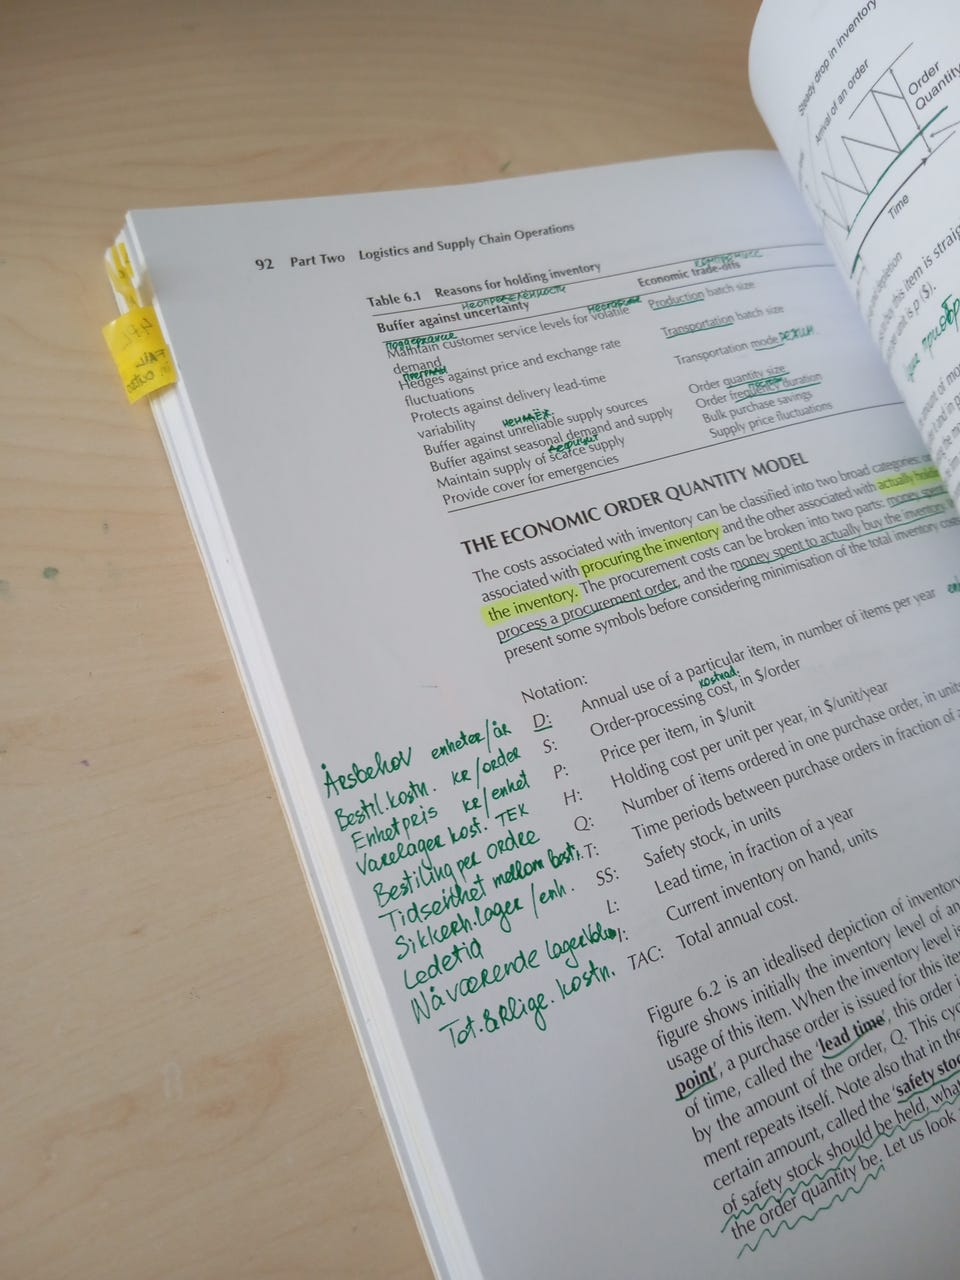 92 Part Two Logistics and Supply Chain Operations
Table 6.1 Reasons for holding inventory
компромисс
Economic trade-offs
неопределённости
Buffer against uncertainty
Production batch size
поддержание
Maintain customer service levels for volatile
demand
Transportation batch size
Hedges against price and exchange rate
fluctuations
Transportation mode режим
Protects against delivery lead-time
variability
Order quantity size
Order frequency duration
ненадёж
Buffer against unreliable supply sources
Bulk purchase savings
Buffer against seasonal demand and supply
Supply price fluctuations
дефицит
Maintain supply of scarce supply
Provide cover for emergencies
THE ECONOMIC ORDER QUANTITY MODEL
The costs associated with inventory can be classified into two broad categories:
associated with procuring the inventory and the other associated with actually
the inventory. The procurement costs can be broken into two parts: money
process a procurement order, and the money spent to actually buy the inventory
present some symbols before considering minimisation of the total inventory
Notation:
D: Annual use of a particular item, in number of items per year
kostnad.
S: Order-processing cost, in $/order
P: Price per item, in $/unit
H: Holding cost per unit per year, in $/unit/year
Q: Number of items ordered in one purchase order, in
T: Time periods between purchase orders in fraction of
SS: Safety stock, in units
L: Lead time, in fraction of a year
I: Current inventory on hand, units
TAC: Total annual cost.
Årsbehov enheter/år
Bestil.kostn. kr/order
Enhetpris kr/enhet
Varelager kost. TEK
Bestiling per ordre
Tidsenhet mellom besti.
Sikkerh.lager /enh.
Ledetid
Nåværende lager
Tot.årlige. kostn.
Figure 6.2 is an idealised depiction of inventory
figure shows initially the inventory level of an
usage of this item. When the inventory level is
point', a purchase order is issued for this
of time, called the 'lead time', this order
by the amount of the order, Q. This
ment repeates itself. Note also that in the
certain amount, called the 'safety
of safety stock should be held,
the order quantity be. Let us look
Steady drop in inventory
Arrival of an order
Order
Quantity
Time
this item is
is p ($).